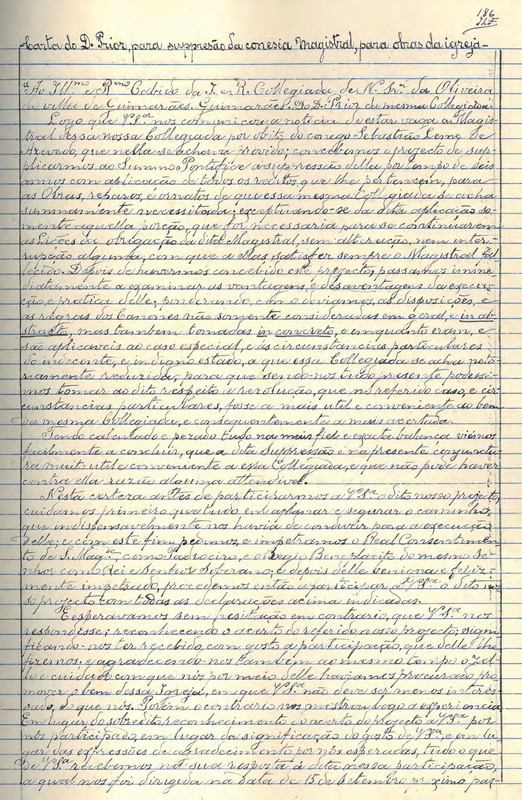 186
Carta do D. Prior, para suppresão da conesia Magistral, para obras da igreja-
"Ao Ill.mo e R.mo Cabido da I. e R. Collegiada de N. Snr.a da Oliveira
da villa de Guimarães. Guimarães. Do D. Prior da mesma Collegiada.
Logo que V.S.a nos comunicou a noticia de estar vaga a Magis-
tral dessa nossa Collegiada por obito do conego Sebastião Leme de
Azevedo, que nella se achava provido; concebemos o projecto de sup-
plicarmos ao Summo Pontifice a suppressão della por tempo de seis
annos com aplicação de todos os reditos, que lhe pertencem, para
as Obras, reparos, e ornatos de que essa mesma Collegiada se acha
summamente necessitada; exceptuando-se da dita aplicação so-
mente aquella porção, que for necessaria para se continuarem
as Lições da obrigação da dita Magistral, sem alteração, nem inter-
rupção alguma, com que a ellas satisfez sempre o Magistral fal-
lecido. Depois de havermos concebido este projecto, passamos imme-
diatamente a examinar as vantagens, e desavantagens da execu-
ção, e pratica delle; ponderando, como deviamos, as disposições, e
as régras dos Canones não somente consideradas em geral, e in abs-
tracto, mas tambem tomadas in concreto, e emquanto eram, e
são aplicaveis ao caso especial, e ás circunstancias particulares
do indecente, e indigno estado, a que essa Collegiada se acha noto-
riamente reduzida, para que sendo-nos tudo presente podesse-
mos tomar ao dito respeito a resolução, que no referido caso, e cir-
cunstancias particulares, fosse a mais util e conveniente ao bem
da mesma Collegiada, e consequentemente a mais acertada.
Tendo calculado e pezado tudo na mais fiel e exacta balança viemos
facilmente a concluir, que a dita Suppressão é na presente conjunctu-
ra muit util e conveniente a essa Collegiada, e que não póde haver
contra ella razão alguma attendivel.
Nesta certeza antes de participarmos a V.S.a o dito nosso projecto,
cuidamos primeiro que tudo em aplanar e segurar o caminho,
que indispensavelmente nos havia de conduzir para a execução
delle; e com este fim pedimos, e impetramos o Real Consentimen-
to de S. Mag.de, como Padroeiro, e o Regio Beneplacito do mesmo Se-
nhor como Rei e Senhor Soberano; e depois delle benigna e feliz-
mente impetrado, procedemos então a participar a V.S.a o dito nos-
so projecto com todas as declarações acima indicadas.
E esperavamos sem hesitação em contrario, que V.S.a nos
respondesse; reconhecendo o acerto do referido nosso projecto; signi-
ficando-nos ter recebido com gosto a participação, que delle lhe
fizemos, e agradecendo-nos tambem ao mesmo tempo o zel-
lo e cuidado com que nós por meio delle haviamos procurado pro-
mover o bem dessa Igreja, em que V.S.a não deve ser menos interes-
sado, do que nós. Porém o contrario nos mostrou logo a experiencia.
Em lugar do sobredito reconhecimento do acerto do projecto a V.S.a por
nós participado, em lugar da significação do gosto de V.S.a, e em lu-
gar das expressões de agradecimento por nós esperadas, tudo o que
de V.S.a recebemos na sua resposta á dita nossa participação,
a qual nos foi dirigida na data de 15 de Setembro proximo pas-